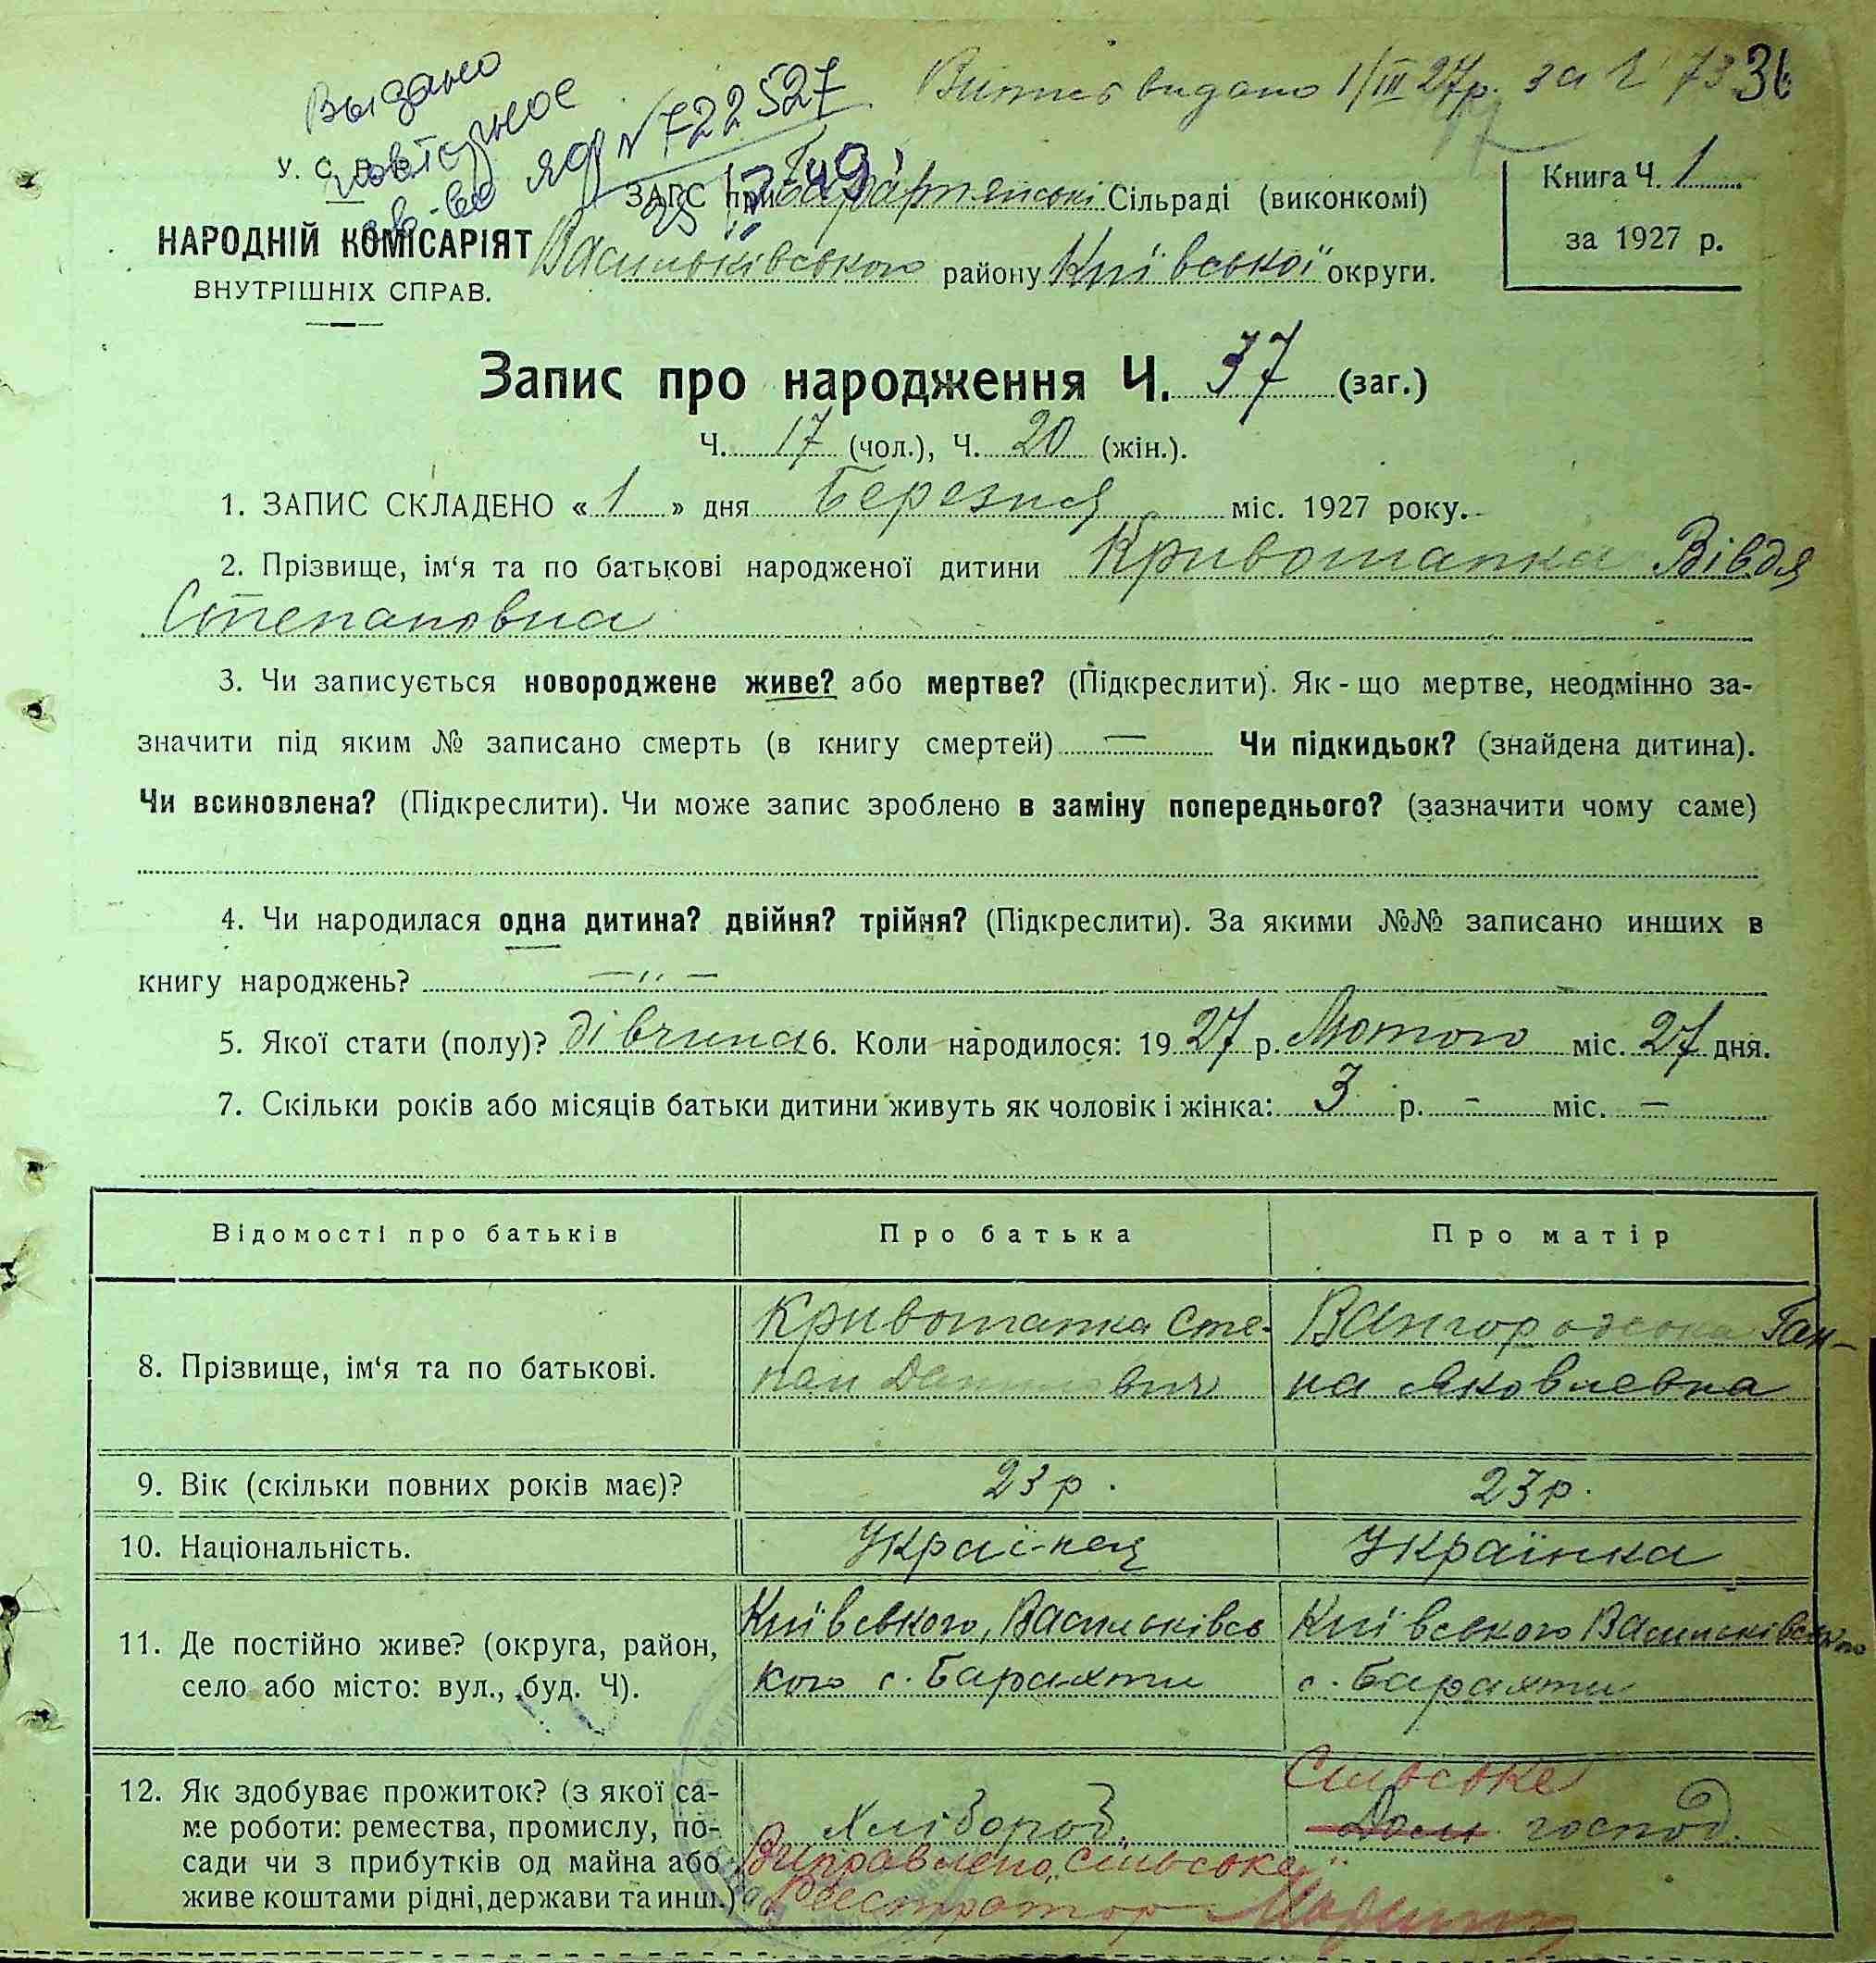 Витяг видано 1/III 27р. за Ч 73 36
Выдано
повторное
св-во ЯФ №722527
У. С. Р. Р.
ЗАГС при Барахтянські Сільраді (виконкомі)
Книга Ч. 1
НАРОДНІЙ КОМІСАРІЯТ Васильківського району Київської округи.
за 1927 р.
ВНУТРІШНІХ СПРАВ.
Запис про народження Ч. 37 (заг.)
Ч. 17 (чол.), Ч. 20 (жін.).
1. ЗАПИС СКЛАДЕНО « 1 » дня Березня міс. 1927 року.
2. Прізвище, ім‘я та по батькові народженої дитини Кривошапка Вівдя
Степановна
3. Чи записується новороджене живе? або мертве? (Підкреслити). Як-що мертве, неодмінно за-
значити під яким № записано смерть (в книгу смертей) — Чи підкидьок? (знайдена дитина).
Чи всиновлена? (Підкреслити). Чи може запис зроблено в заміну попереднього? (зазначити чому саме)
4. Чи народилася одна дитина? двійня? трійня? (Підкреслити). За якими №№ записано инших в
книгу народжень? —〃—
5. Якої стати (полу)? дівчина 6. Коли народилося: 1927 р. Лютого міс. 27 дня.
7. Скільки років або місяців батьки дитини живуть як чоловік і жінка: 3 р. - міс. —
Відомості про батьків Про батька Про матір
Кривошапка Сте- Вангородська Ган-
8. Прізвище, ім‘я та по батькові.
пан Данилович на Яковлевна
9. Вік (скільки повних років має)? 23 р. 23 р.
10. Національність. Украї-нец Українка
Київського, Васильківсь Київського Васильківського
11. Де постійно живе? (округа, район,
кого с. Барахти с. Барахти
село або місто: вул., буд. Ч).
Сильске
12. Як здобуває прожиток? (з якої са-
ме роботи: ремества, промислу, по- Хлібороб. Дом. господ.
сади чи з прибутків од майна або Виправлено „Сильске"
живе коштами рідні, держави та инш.) Реєстратор